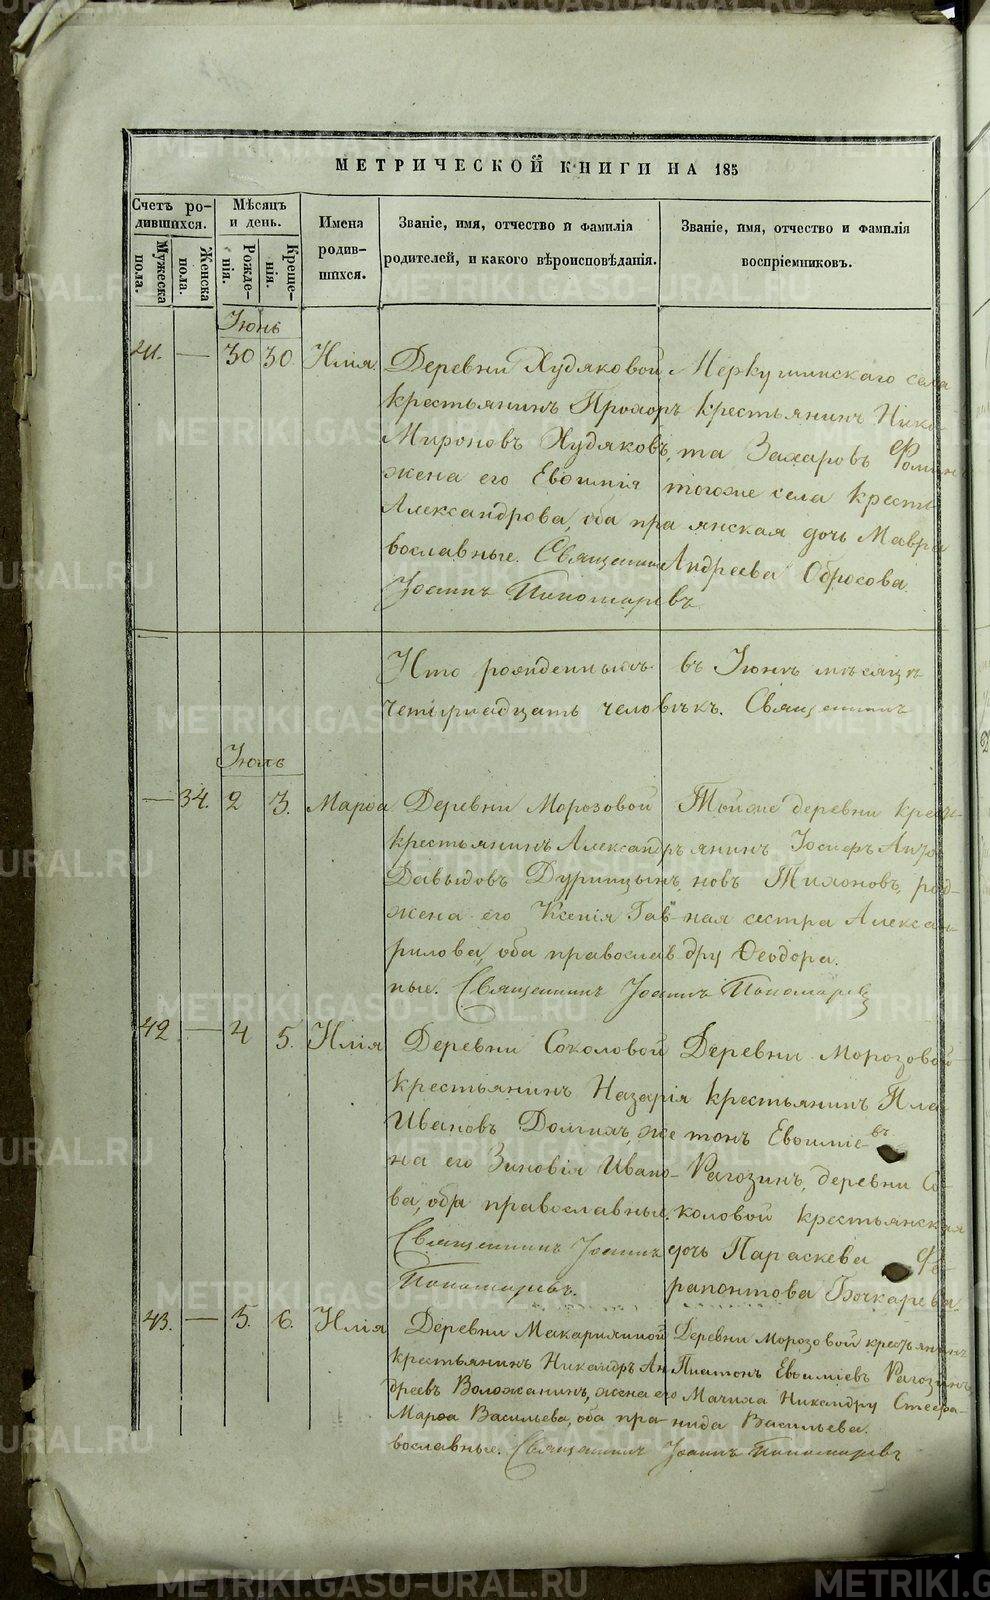 МЕТРИЧЕСКОЙ КНИГИ НА 185
Счетъ ро-
дившихся.
Мужеска
пола.
Женска
пола.
Мѣсяцъ
и день.
Рожде-
нія.
Креще-
нія.
Имена
родив-
шихся.
Званіе, имя, отчество и фамилія
родителей, и какого вѣроисповѣданія.
Званіе, имя, отчество и фамилія
воспріемниковъ.
Іюнь
41. — 30 30 Илія
Деревни Худяковой
крестьянинъ Прохоръ
Мироновъ Худяковъ,
жена его Евѳимія
Александрова, оба пра
вославные. Священник
Іоаннъ Пономаревъ
Меркушинскаго села
крестьянинъ Ники-
та Захаровъ Фомин
тогоже села кресть
янская дочь Мавра
Андреева Обросова.
Итто рожденныхъ въ Іюнѣ мѣсяцѣ
четырнадцать человѣкъ. Священникъ
Іюль
— 34. 2 3. Марѳа
Деревни Морозовой
крестьянинъ Александръ
Давыдовъ Дурницынъ,
жена его Ксенія Гав-
рилова, оба православ
ные. Священникъ Іоаннъ Пономарев
Тойже деревни кресть-
янинъ Іосифъ Антро
новъ Тихоновъ, род-
ная сестра Алексан-
дру Ѳеодора.
42. — 4 5. Илія
Деревни Соколовой
крестьянинъ Назарій
Ивановъ Долгихъ, же
на его Зиновія Ивано-
ва, оба православные.
Священникъ Іоаннъ
Пономаревъ.
Деревни Морозовой
крестьянинъ Пла
тонъ Евѳиміевъ
Рагозинъ, деревни Со-
коловой крестьянская
дочь Параскева Ѳе-
рапонтова Бочкарева.
43. — 5. 6. Илія
Деревни Макарихиной
крестьянинъ Никандръ Ан
дреевъ Воложанинъ, жена его
Марѳа Васильева, оба пра-
вославные. Священникъ Іоаннъ Пономаревъ
Деревни Морозовой крестьянинъ
Платонъ Евѳиміевъ Рагозинъ,
Мачиха Никандру Стефа-
нида Васильева.
METRIKI.GASO-URAL.RU